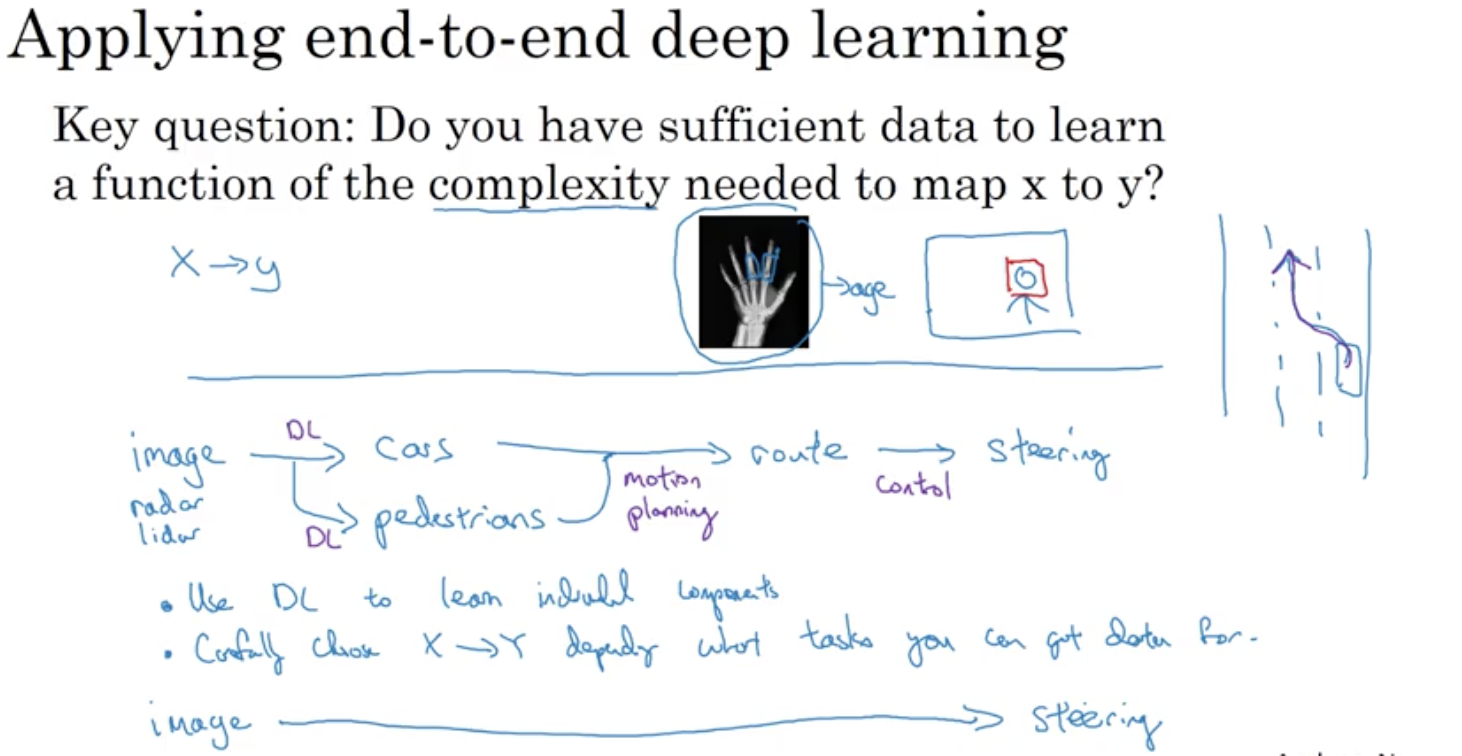 Applying end-to-end deep learning
Key question: Do you have sufficient data to learn
a function of the complexity needed to map x to y?
X → y
→ age
image DL → cars → route → steering
radar
lidar
DL → pedestrians motion planning control
• Use DL to learn individual components
• Carefully choose X → Y depending what tasks you can get data for.
image → steering